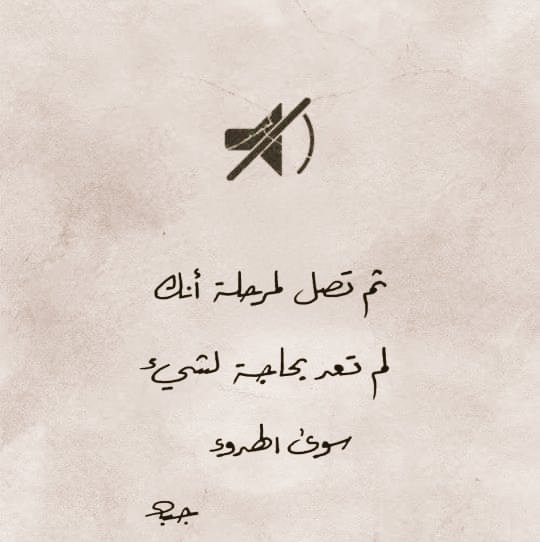 ثم تصل لمرحلة أنك
لم تعد بحاجة لشيء
سوى الهدوء